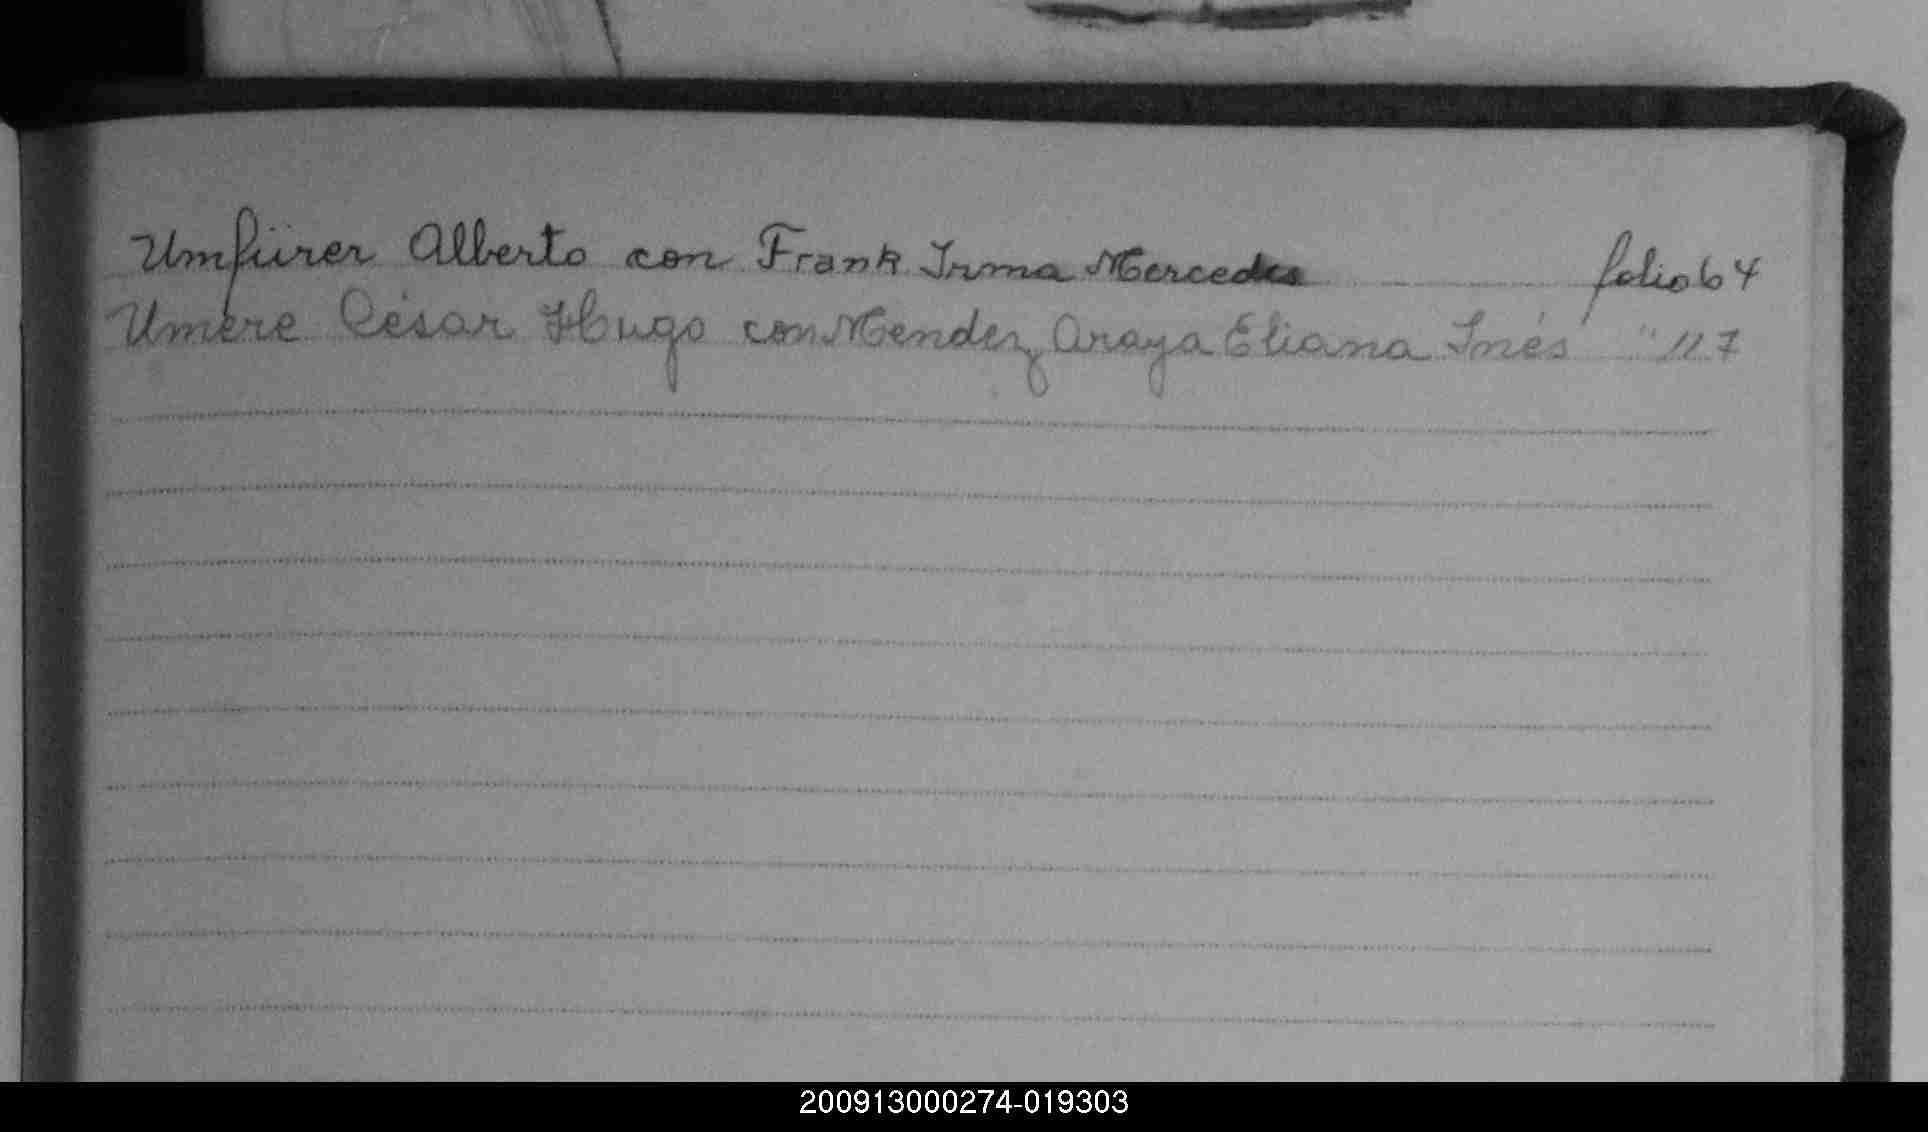 Umfürer Alberto con Frank Irma Mercedes folio 64
Umere César Hugo con Mendez Araya Eliana Inés " 117
200913000274-019303